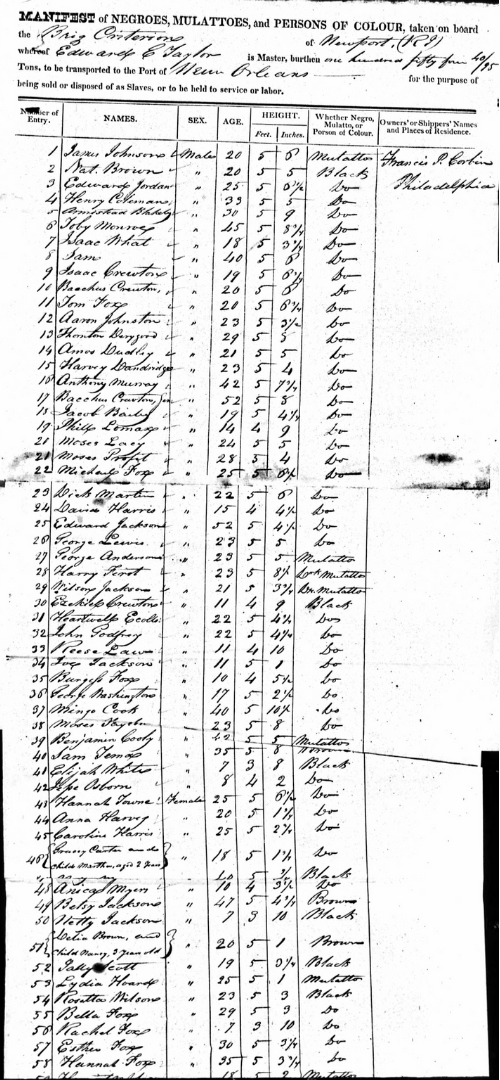 MANIFEST of NEGROES, MULATTOES, and PERSONS OF COLOUR, taken on board
the Brig Criterion of Newport, (RI)
whereof Edward C Taylor is Master, burthen one hundred fifty four 40/95
Tons, to be transported to the Port of New Orleans for the purpose of
being sold or disposed of as Slaves, or to be held to service or labor.
Number of Entry. NAMES. SEX. AGE. HEIGHT. Feet. Inches. Whether Negro, Mulatto, or Person of Colour. Owners' or Shippers' Names and Places of Residence.
1 James Johnson Male 20 5 6 Mulatto Francis P. Corbin
2 Nat. Brown " 20 5 5 Black Philadelphia
3 Edward Jordan " 25 5 Do
4 Henry Coleman " 33 5 5 Do
5 Armistead " 30 5 9 Do
6 Toby Monroe " 45 5 8½ Do
7 Isaac What " 18 5 3½ Do
8 Sam " 40 5 6 Do
9 Isaac Crewton " 19 5 6½ Do
10 Bacchus Crewton, " 20 5 6 Do
11 Tom Fox " 20 5 6½ Do
12 Aaron Johnston " 23 5 3½ Do
13 Thornton " 29 5 5 Do
14 Amos Dudley " 21 5 5 Do
15 Harvey Dandridge " 23 5 4 Do
16 Anthony Murray " 42 5 7½ Do
17 Bacchus Crewton, " 52 5 8 Do
18 Jacob Baily " 19 5 4½ Do
19 Philip Lomax " 14 4 9 Do
20 Moses Lacy " 24 5 5 Do
21 Moses Profit " 28 5 4 Do
22 Michael Fox " 25 5 6½ Do
23 Dick Martin " 22 5 6 Do
24 David Harris " 15 4 4½ Do
25 Edward Jackson " 52 5 4½ Do
26 George Lewis " 23 5 5 Do
27 George Anderson " 23 5 5 Mulatto
28 Harry First " 23 5 8½ Dk Mulatto
29 Wilson Jackson " 21 5 3½ Mulatto
30 Ezekiel Crewton " 11 4 9 Black
31 Heartwell " 22 5 4½ Do
32 John Godfrey " 22 5 4½ Do
33 Reese Law " 11 4 10 Do
34 Jackson " 11 5 1 Do
35 Burgess Fox " 10 4 5½ Do
36 George Washington " 17 5 2½ Do
37 Mingo Cook " 40 5 10½ Do
38 Moses " 23 5 8 Do
39 Benjamin " 5 5 Mulatto
40 Sam " 35 5 8
41 Elijah White " 7 3 8 Black
42 Osborn " 8 4 2 Do
43 Hannah Towne Female 25 5 6½ Do
44 Anna Harvey " 20 5 1½ Do
45 Caroline Harris " 25 5 2½ Do
46 Gracey Carter and
child Martha, aged 2 Years " 18 5 1½ Do
" 40 5 Black
48 Anica Myers " 10 4 3½ Do
49 Betsy Jackson " 47 5 4½ Brown
50 Netty Jackson " 7 3 10 Black
51 Delia Brown, and
child Nancy, 3 Years old " 20 5 1 Brown
52 Sally Scott " 19 5 3½ Black
53 Lydia Hoard " 25 5 1 Mulatto
54 Rosetta Wilson " 23 5 3 Black
55 Bella Fox " 29 5 3 Do
56 Rachel Fox " 7 3 10 Do
57 Esther Fox " 30 5 3½ Do
58 Hannah Fox " 35 5 3½ Do
18 5 2 Mulatto